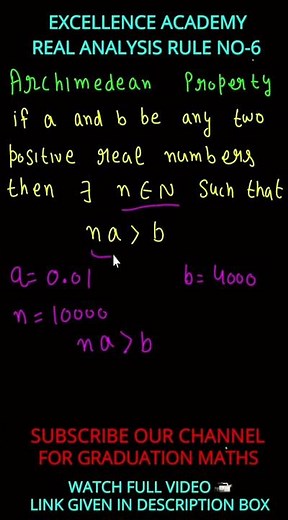 EXCELLENCE ACADEMY
REAL ANALYSIS RULE NO-6
Archimedean Property
if a and b be any two
positive real numbers
then ∃ n ∈ N such that
na > b
a = 0.01 b = 4000
n = 10000
na > b
SUBSCRIBE OUR CHANNEL
FOR GRADUATION MATHS
WATCH FULL VIDEO
LINK GIVEN IN DESCRIPTION BOX